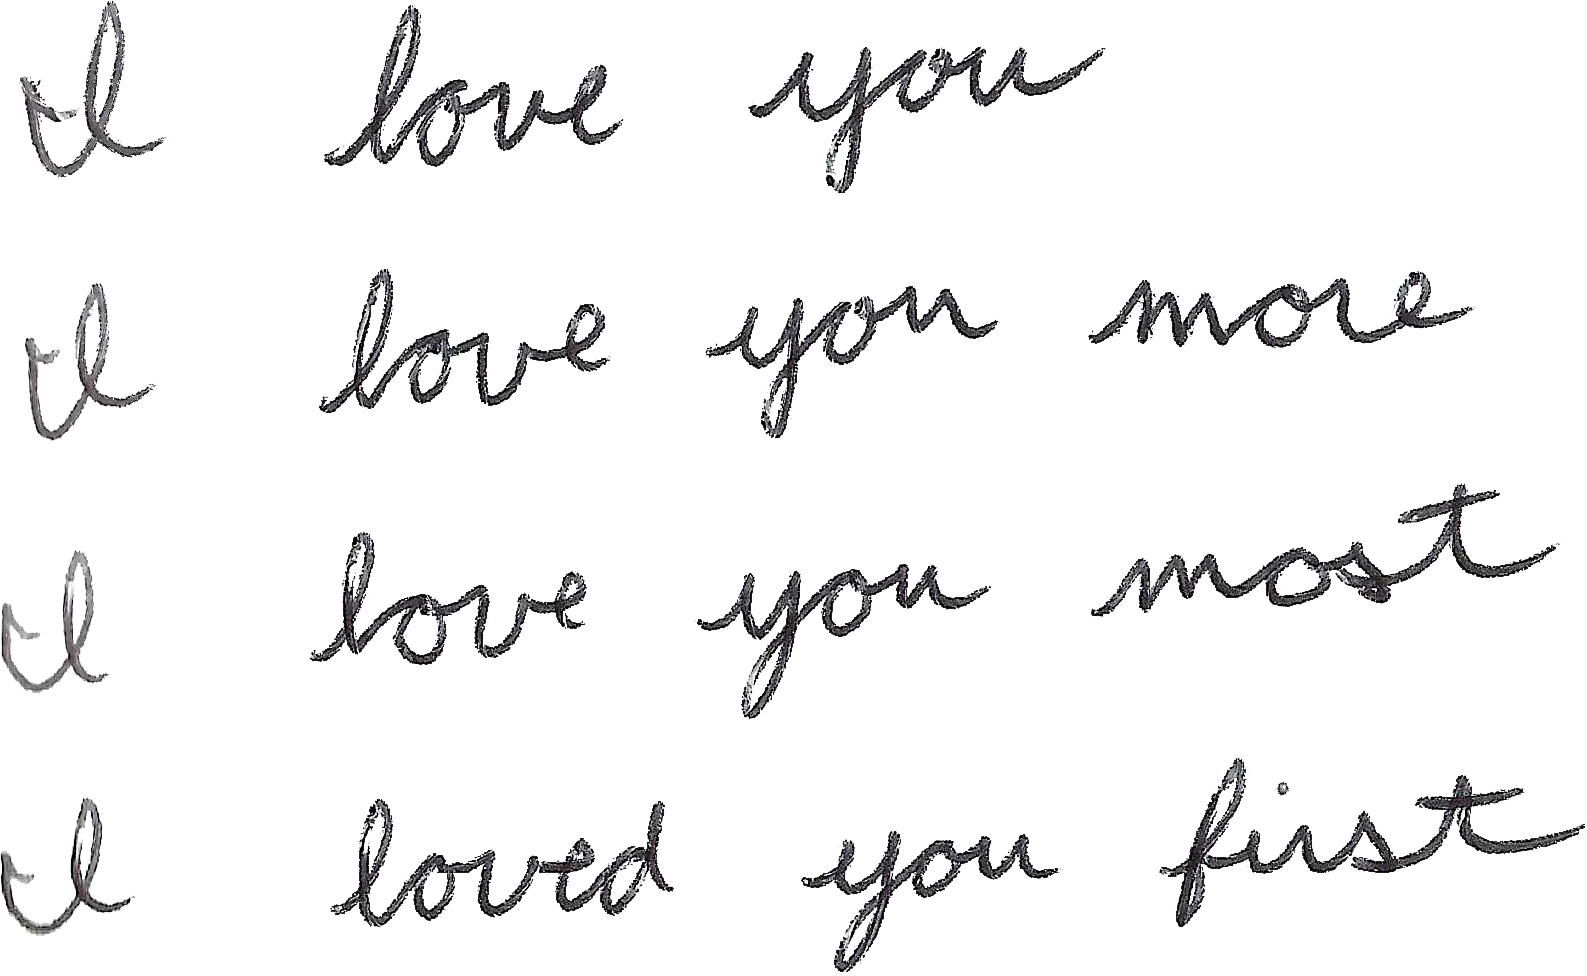 I love you
I love you more
I love you most
I loved you first